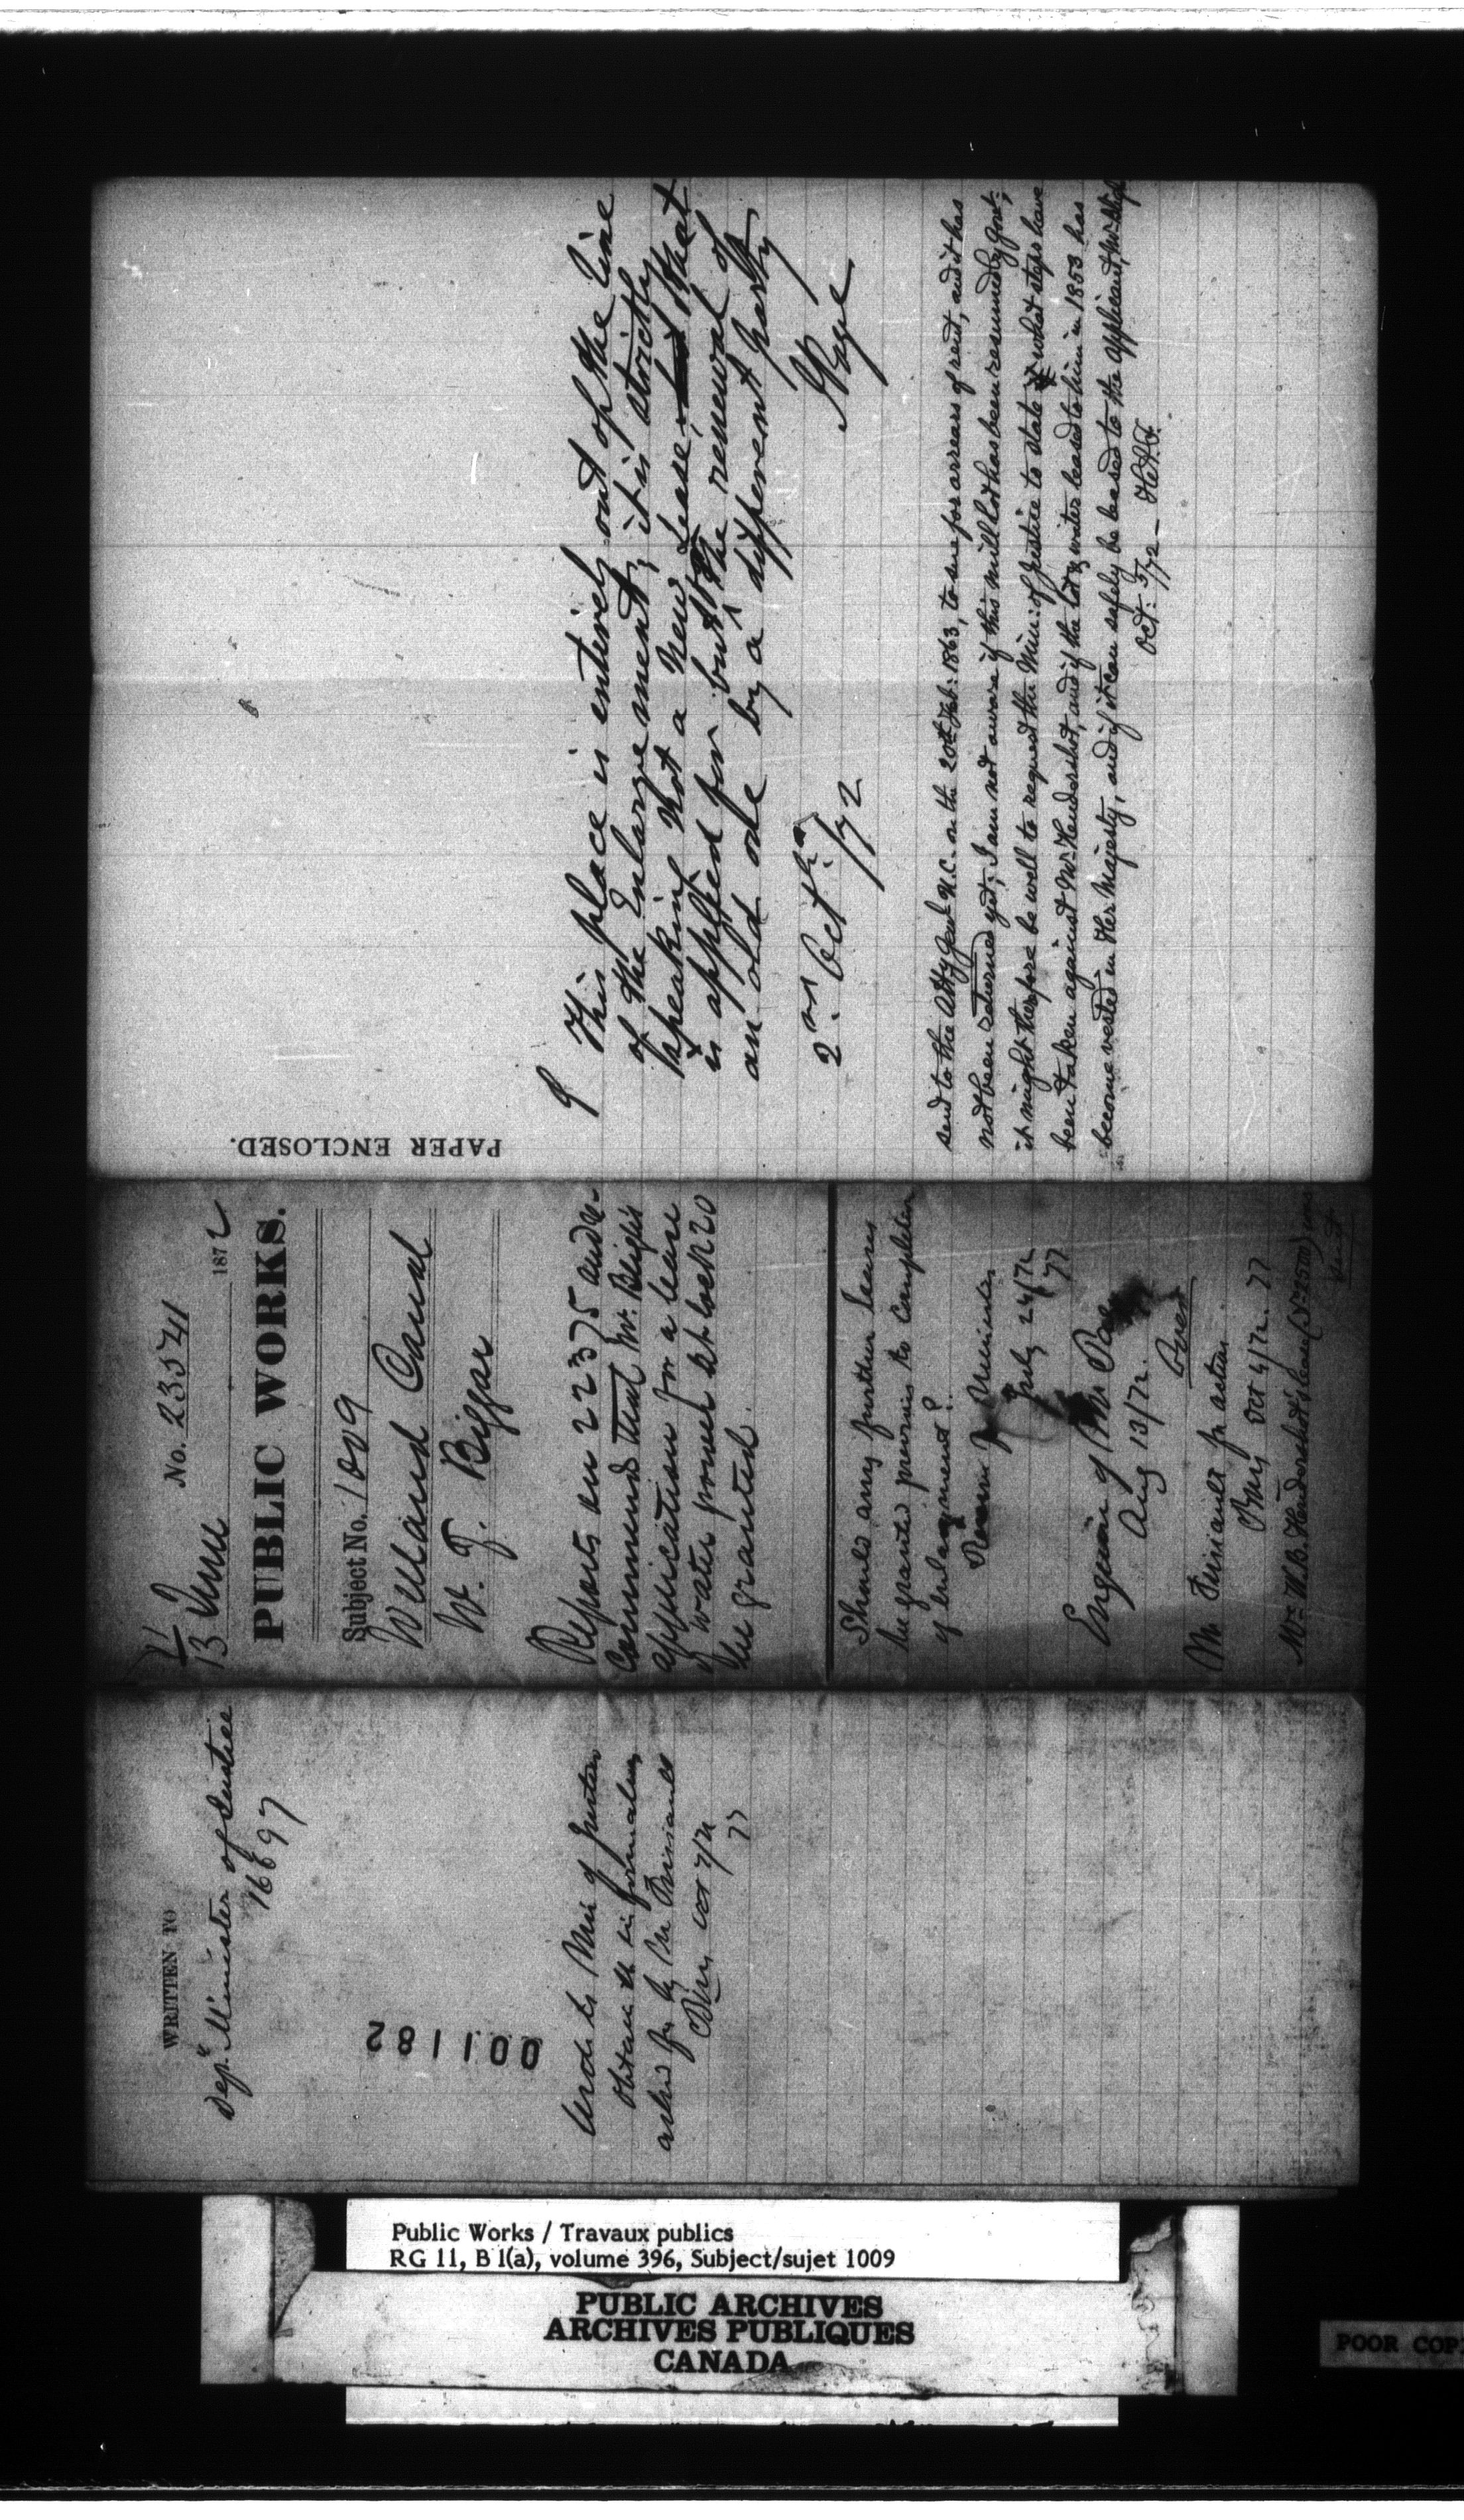 WRITTEN TO
Dep. Minister of Justice
16697
001182
Write to Min of Justice
Obtain the information
asked for by Mr
Oct 7/72
11
13 June No. 23541 1872
PUBLIC WORKS.
Subject No. 1009
Welland Canal
W. F. Biggar
Reports on 22375 and
commends that Mr. Bligh's
application for a lease
of water power at Lock 20
be granted.
Should any further leases
be granted previous to completion
of enlargement?
Minister
July 24/72
Enquire of Mr Page
Aug 13/72.
Over
Mr for action
Oct 4/72.
Mr. W. B. Hendershot's lease (No. ) was
sent to the Atty Genl U.C. on the 20th Feb: 1863, to sue for arrears of rent, and it has
not been returned yet; I am not aware if this mill lot has been resumed by Govt:
it might therefore be well to request the Min: of Justice to state what steps have
been taken against Mr. Hendershot, and if the lot & water leased to him in 1853 has
become vested in Her Majesty, and if it can safely be leased to the applicant, Mr. Bligh
Oct: 5/72 — H.A.F.
PAPER ENCLOSED.
This place is entirely out of the line
of the Enlargement; it is strictly
speaking not a new Lease that
is applied for but the renewal of
an old one by a different party
2nd Octr /72
J Page
Public Works / Travaux publics
RG 11, B 1(a), volume 396, Subject/sujet 1009
PUBLIC ARCHIVES
ARCHIVES PUBLIQUES
CANADA
POOR COP